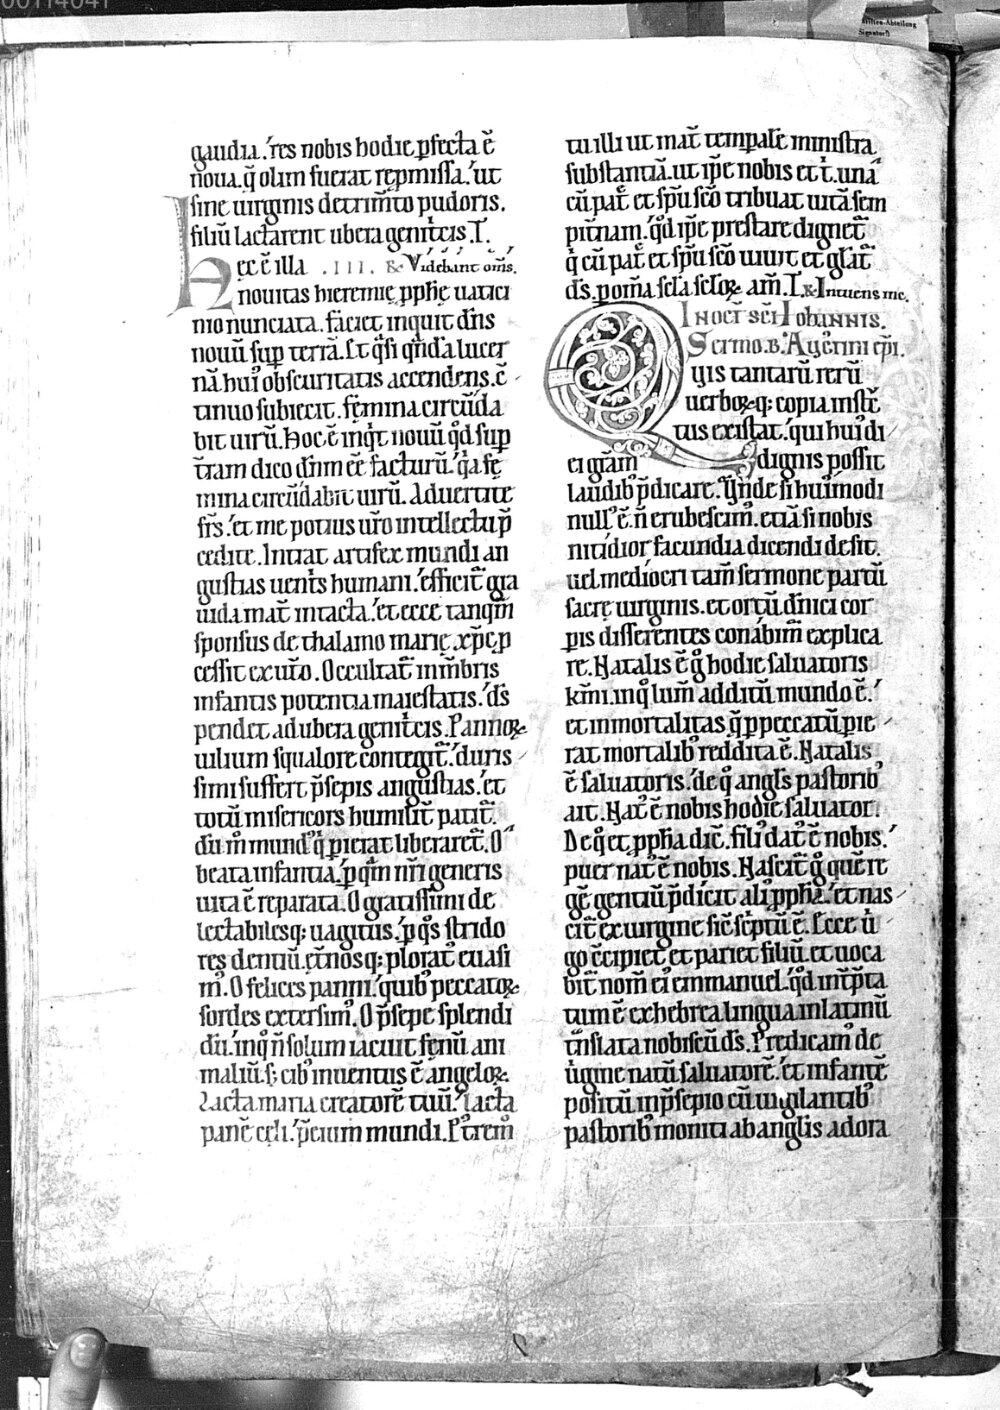 00114041
gaudia. res nobis hodie pfecta ē
noua. q̄ olim fuerat repmissa. ut
sine uirginis detrim̄to pudoris.
filiū lactarent ubera genitcis. I.
ec ē illa .III. & Videbant om̄s.
nouitas hieremię pph̄ę uatici
nio nunciata. faciet inquit dn̄s
nouū sup terrā. Et q̄si qn̄da lucer
nā huiꝰ obscuritatis accendens. ē
tinuo subiecit. femina circūda
bit uirū. Hoc ē inqͥt nouū qd̄ sup
t̄ram dico dn̄m eē facturū. qͥa fę
mina circūdabit uirū. Aduertite
fr̄s. et me potius ur̄o intellectu p̄
cedite. Intrat artifex mundi an
gustias uent̄s humani. efficit᷑ gra
uida mat̄ intacta. et ecce tanqm̄
sponsus de thalamo marię xp̄c p
cessit ex ut̄o. Occultat᷑ in mēbris
infantis potentia maiestatis. ds̄
pendet ad ubera genitcis. Pannoꝝ
uilium squalore contegit᷑. duris
simi suffert p̄sepis angustias. et
totū misericors humilit̄ patit᷑.
dū m̊ mundꝰ qͥ pierat liberaret᷑. O
beata infantia, p qm̄ nr̄i generis
uita ē reparata. O gratissimi de
lectabilesq; uagitus, p qͦs strido
res dentiū. et̄nosq; plorat᷑ euasi
mꝰ. O felices panni. quibꝰ peccatoꝝ
sordes extersimꝰ. O p̄sepe splendi
dū. in qͦ n̄ solum iacuit fenū ani
maliū. s; cibꝰ inuentus ē angeloꝝ.
Lacta maria creatorē tuū. lacta
panē cęli. p̄cium mundi. P̄trem
tu illi ut mat̄ tempale ministra
substantiā. ut ip̄e nobis et t. unā
cū pat̄ et sp̄u sc̄o tribuat uitā sem
pit̄nam. qd̄ ip̄e prestare dignet᷑
qͥ cū pat̄ et sp̄u sc̄o uiuit et gl̄at᷑
ds̄. p om̄a sc̄la sc̄loꝝ am̄. I. & Intuens me.
In oct̄ sc̄i Iohannis.
Sermo. B. Avgvstini ep̄i.
Qvis tantarū rerū
uerboꝝq; copia instc̄
tus existat. qui huiꝰ di
ei grām dignis possit
laudibꝰ p̄dicare. Vnde si huiꝰmodi
nullꝰ ē. n̄ erubescimꝰ. etiā si nobis
nitidior facundia dicendi desit.
uel mediocri tam̄ sermone partū
sacre uirginis. et ortū dn̄ici cor
pis differentes conabimꝰ explica
re. Natalis ē g̊ hodie saluatoris
km̄i. in qͦ lum̄ additū mundo ē.
et inmortalitas q̄ p peccatū pie
rat mortalibꝰ reddita ē. Natalis
ē saluatoris. de qͦ angl̄s pastoribꝰ
ait. Natꝰ ē nobis hodie saluator.
De qͦ et ppha dic̄. filiꝰ datꝰ ē nobis.
puer natꝰ ē nobis. Nascit᷑ g̊ que rē
gē gentiū p̄dicit aliꝰ ppha. et nas
cit᷑ ex uirgine sic sc̄ptū ē. Ecce ū
go c̄cipiet et pariet filiū. et uoca
bit᷑ nom̄ eiꝰ emmanuel. qd̄ int̄p̄ta
tum ē ex hebrea lingua in latinū
t̄nslata nobiscū ds̄. Predicam̄ de
ūgine natū saluatorē. et infantē
positū in p̄sepio cū uigilantibꝰ
pastoribꝰ moniti ab angl̄is adora